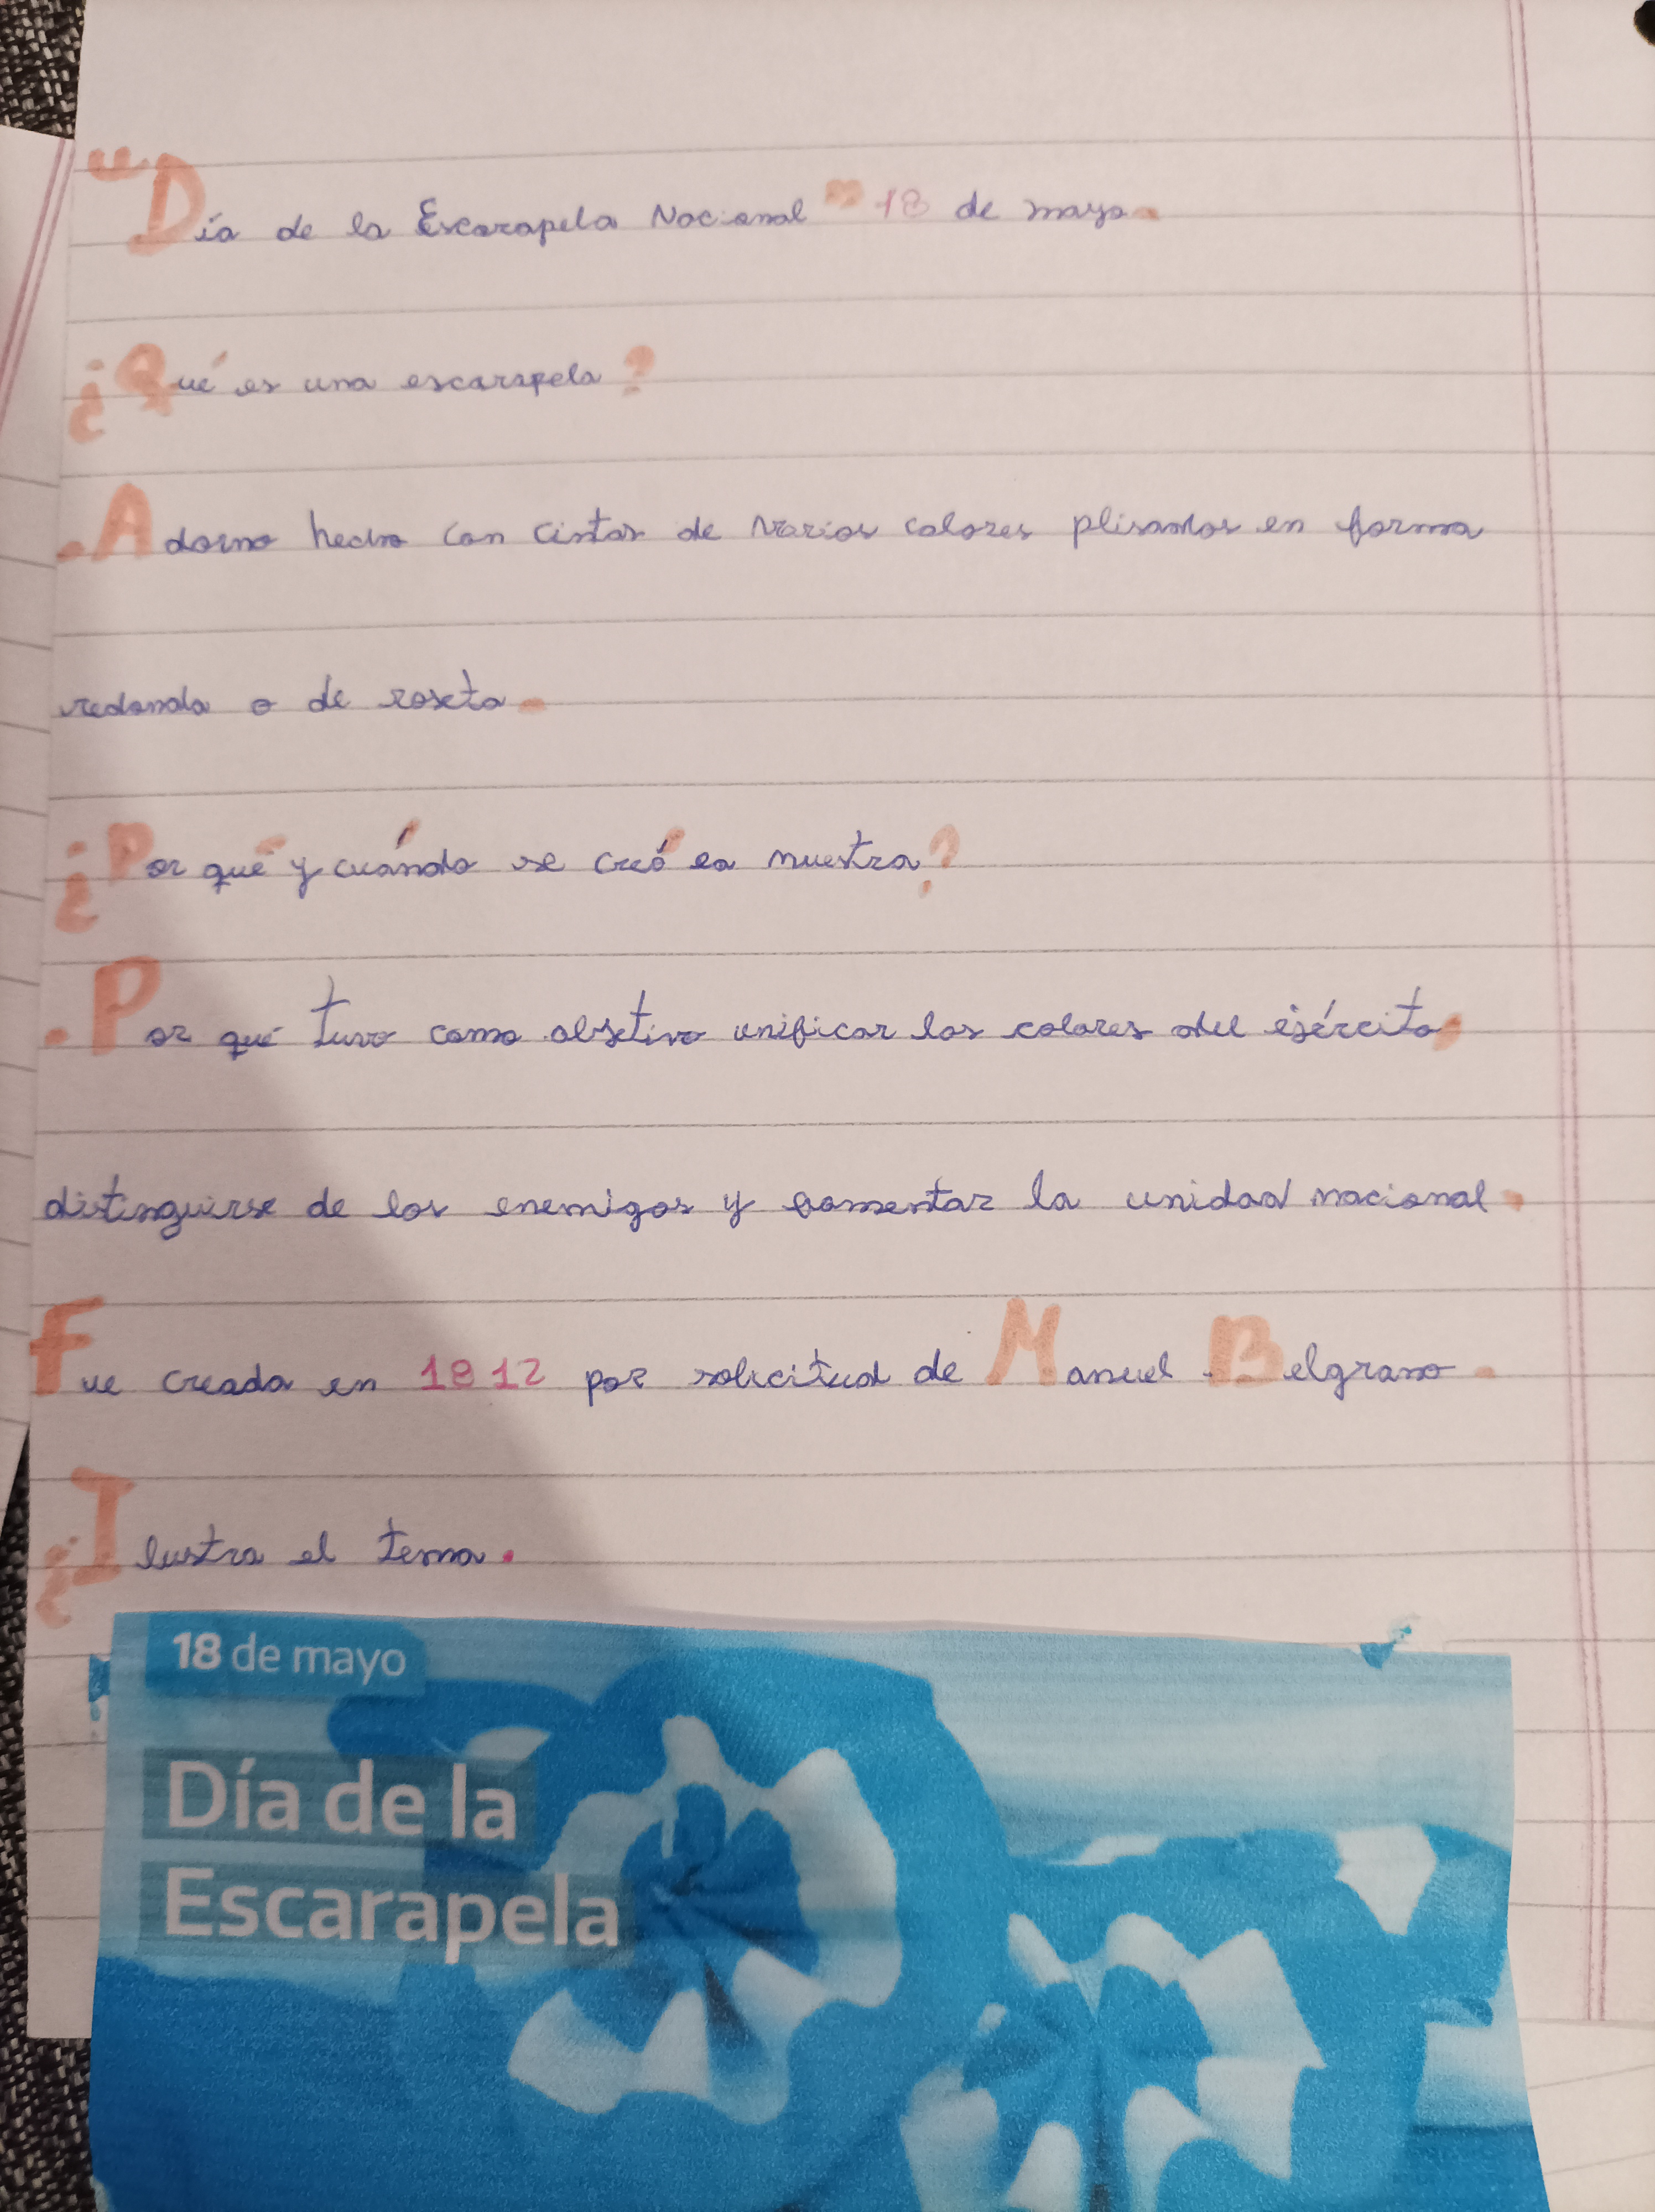 "Día de la Escarapela Nacional" 18 de mayo.
¿Qué es una escarapela?
.Adorno hecho con cintas de varios colores plisados en forma
redonda o de roseta.
¿Por qué y cuándo se creó la nuestra?
.Por qué tuvo como objetivo unificar los colores del ejército,
distinguirse de los enemigos y fomentar la unidad nacional.
Fue creada en 1812 por solicitud de Manuel Belgrano.
¿Ilustra el tema.
18 de mayo
Día de la
Escarapela